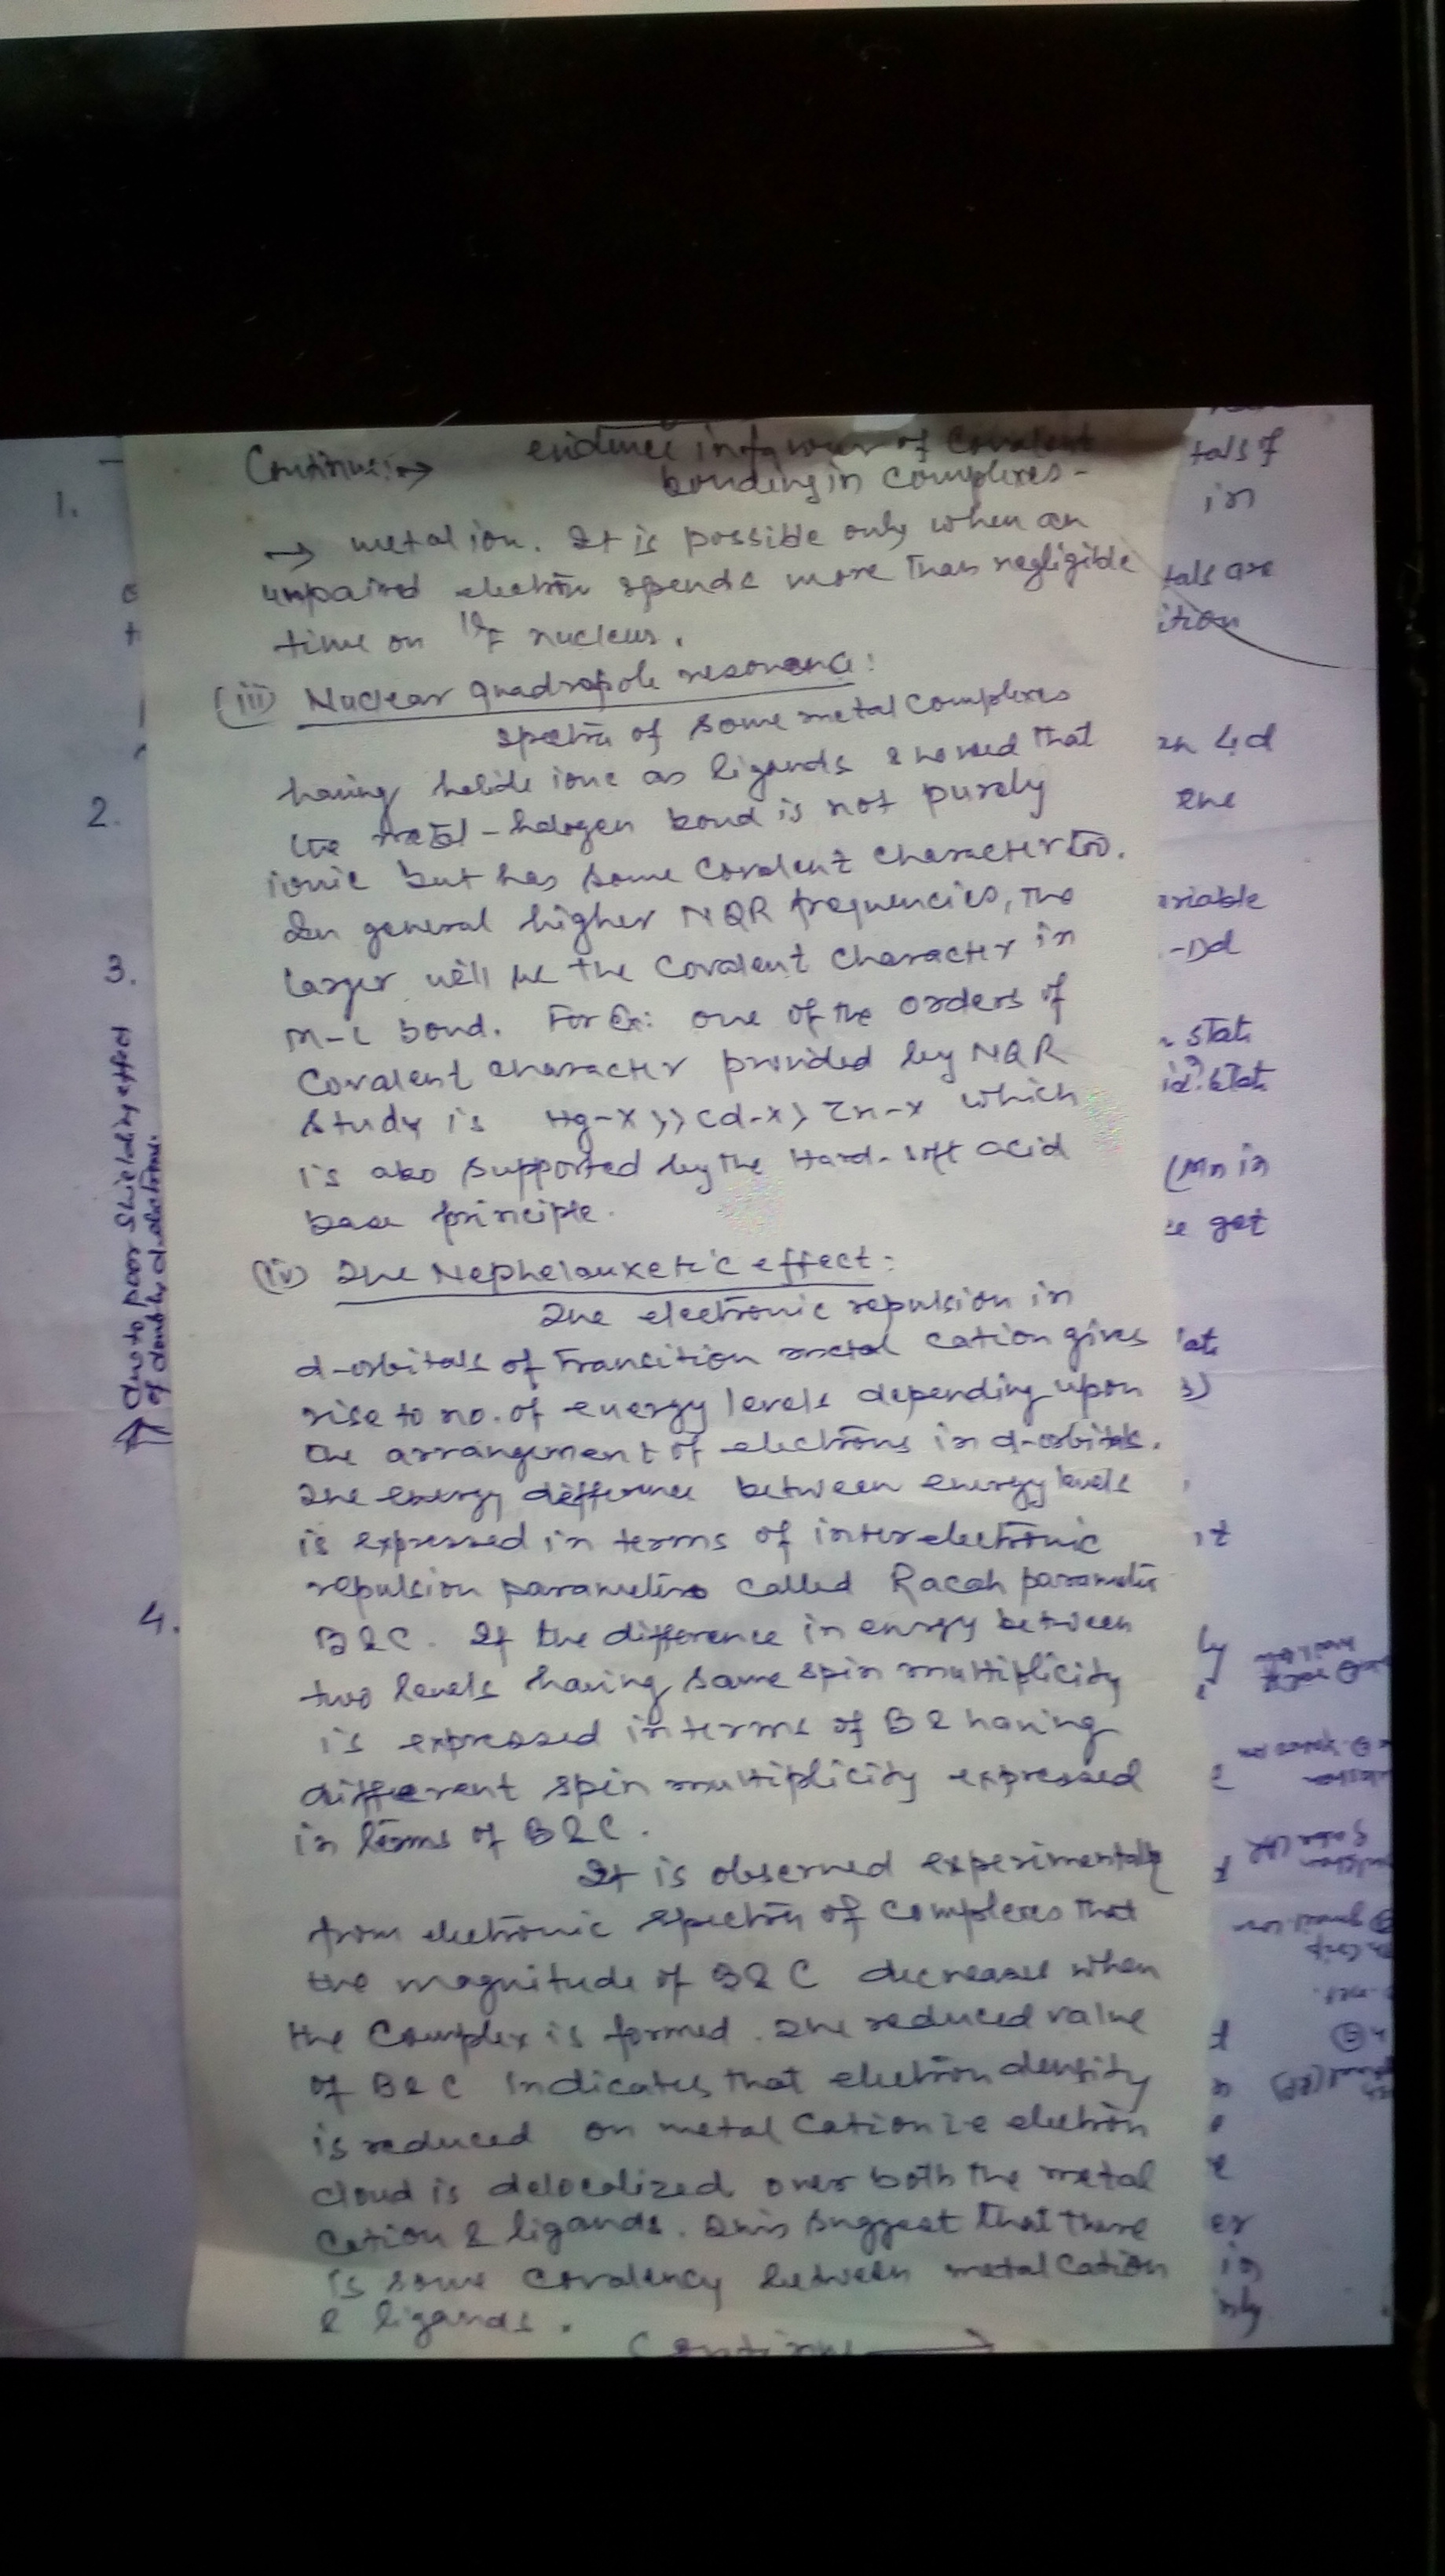 Continue →
evidence in favour of Covalent
bonding in complexes -
→ metal ion. It is possible only when an
unpaired electron spends more than negligible
time on 19F nucleus.
(iii) Nuclear quadrapole resonance:
spectra of some metal complexes
having halide ions as ligands showed that
the metal-halogen bond is not purely
ionic but has some covalent character too.
In general higher NQR frequencies, the
larger will be the covalent character in
M-L bond. For Ex: one of the orders of
Covalent character provided by NQR
study is Hg-X >> Cd-X > Zn-X which
is also supported by the Hard-soft acid
base principle.
(iv) The Nephelauxetic effect:
The electronic repulsion in
d-orbitals of Transition metal cation gives
rise to no. of energy levels depending upon
the arrangement of electrons in d-orbitals.
The energy difference between energy levels
is expressed in terms of interelectronic
repulsion parameters called Racah parameter
B & C. If the difference in energy between
two levels having same spin multiplicity
is expressed in terms of B & having
different spin multiplicity expressed
in terms of B & C.
It is observed experimentally
from electronic spectra of complexes that
the magnitude of B & C decreases when
the Complex is formed. The reduced value
of B & C indicates that electron density
is reduced on metal Cation i.e electron
cloud is delocalized over both the metal
Cation & ligands. This suggest that there
is some covalency between metal cation
& ligands.
Continue →
1.
2.
3.
4.
due to poor shielding effect
of d electrons.
tals of
in
tals are
ition
4d
the
ariable
state
(Mn in
get
it
ly
er
in